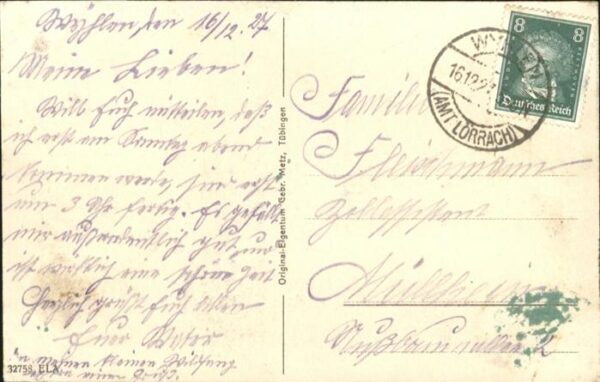 Wyhlen, den 16/12. 27
Meine Lieben!
Will Euch mitteilen, daß
ich erst am Sonntag abend
kommen werde, sind erst
um 3 Uhr fertig. Es gefällt
mir außerordentlich gut und
ist wirklich eine schöne Zeit
Herzlich grüßt Euch allen
Euer Vater
meinen kleinen
32758 ELX
Original-Eigentum Gebr. Metz, Tübingen
8 8
Deutsches Reich
16.12.2
(AMT LÖRRACH)
Familie
Fleischmann
Zollassistent
Müllheim